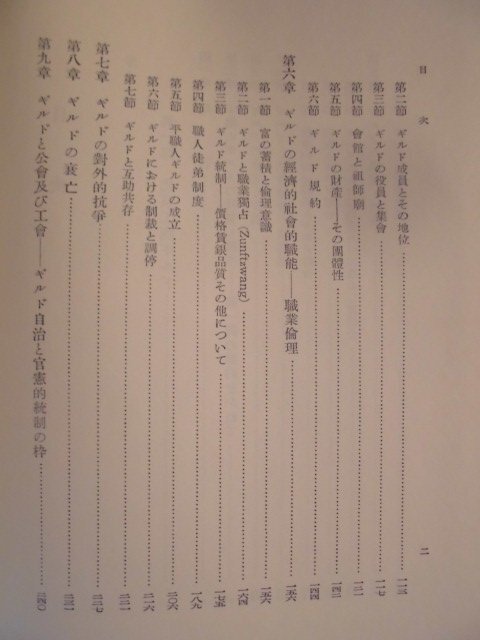 目次
二
第二節 ギルド成員とその地位……一一三
第三節 ギルドの役員と集會……一二七
第四節 會館と祖師廟……一三一
第五節 ギルドの財產——その團體性……一四二
第六節 ギルド規約……一四四
第六章 ギルドの經濟的社會的職能——職業倫理……一五六
第一節 富の蓄積と倫理意識……一五六
第二節 ギルドと職業獨占(Zunftzwang)……一六四
第三節 ギルド統制——價格賃銀品質その他について……一七五
第四節 職人徒弟制度……一八九
第五節 平職人ギルドの成立……二〇六
第六節 ギルドにおける制裁と調停……二一六
第七節 ギルドと互助共存……二二一
第七章 ギルドの對外的抗爭……二二七
第八章 ギルドの衰亡……二三一
第九章 ギルドと公會及び工會——ギルド自治と官憲的統制の枠……二四〇